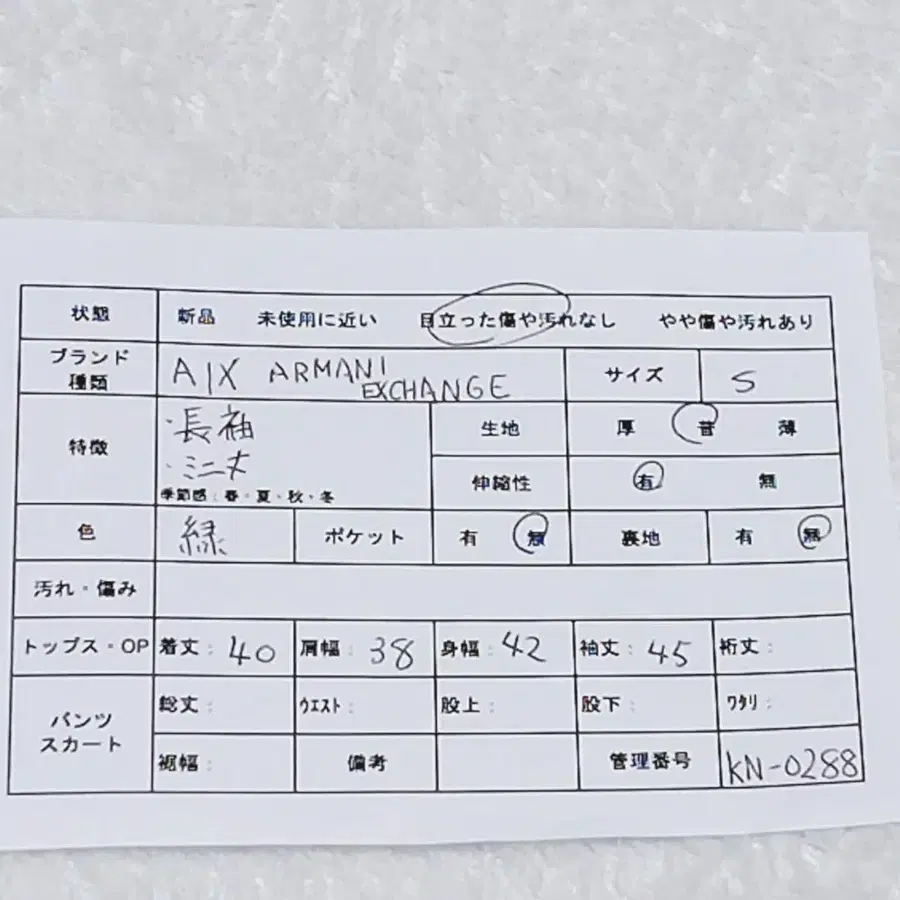 状態 新品 未使用に近い 目立った傷や汚れなし やや傷や汚れあり
ブランド
種類 A|X ARMANI
EXCHANGE サイズ S
特徴 ・長袖
・ミニ丈
季節感:春・夏・秋・冬
生地 厚 普 薄
伸縮性 有 無
色 緑 ポケット 有 無 裏地 有 無
汚れ・傷み
トップス・OP 着丈: 40 肩幅: 38 身幅: 42 袖丈: 45 裄丈:
パンツ
スカート
総丈: ウエスト: 股上: 股下: ワタリ:
裾幅: 備考 管理番号 KN-0288